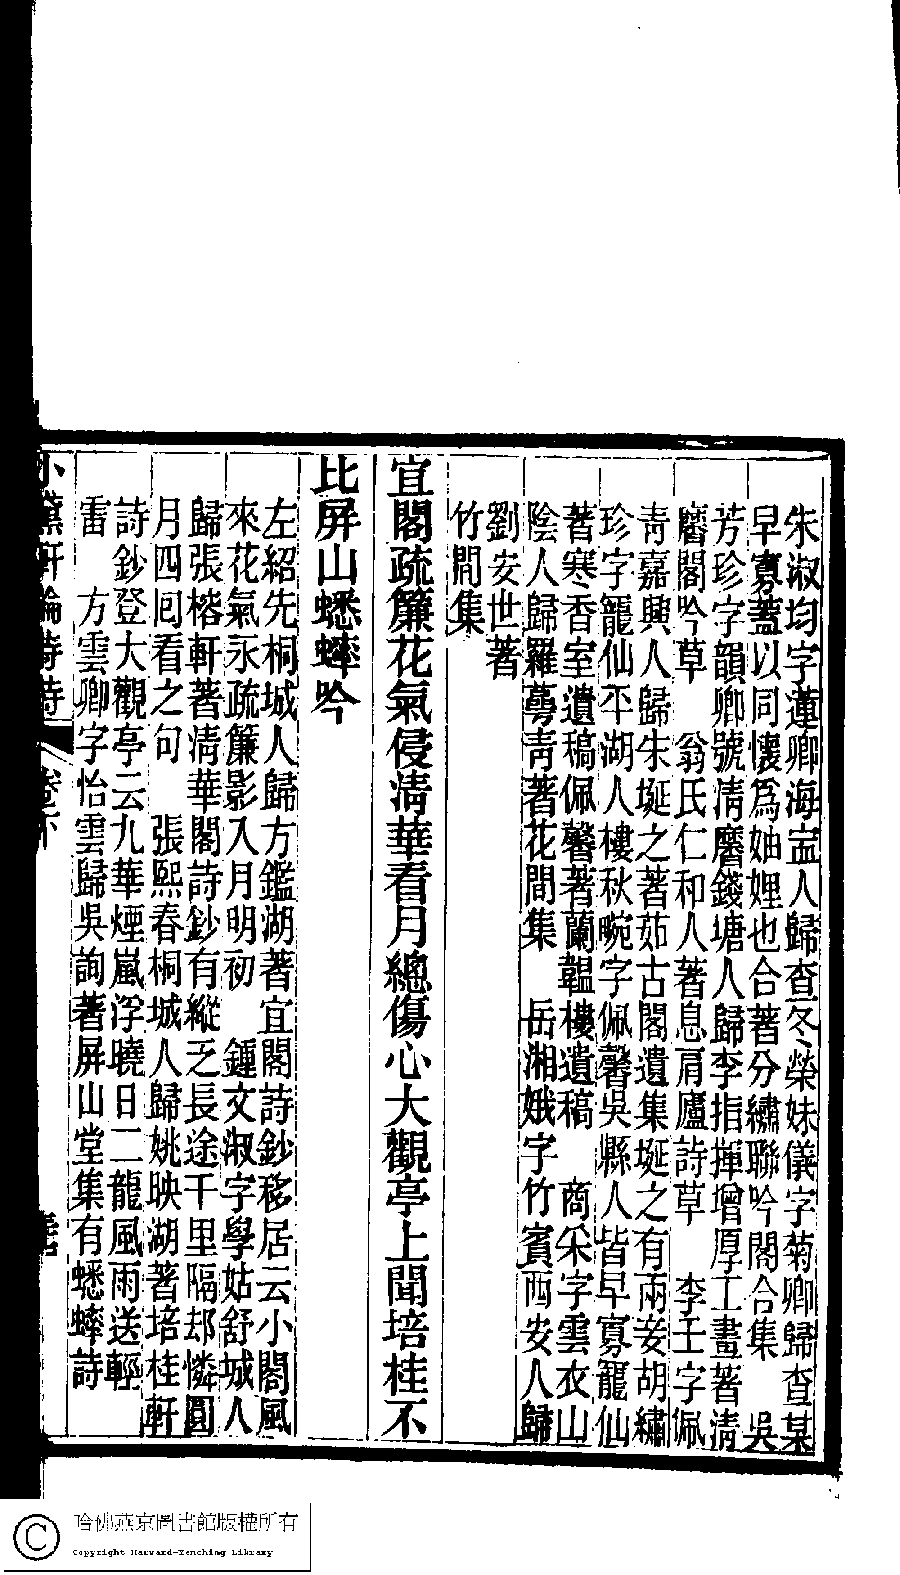 朱淑均字蓮卿海寍人歸查冬榮妹儀字菊卿歸查某
早寡蓋以同懷爲妯娌也合著分繡聯吟閣合集　吳
芳珍字韻卿號清麐錢塘人歸李指揮增厚工畫著清
麐閣吟草　翁氏仁和人著息肩廬詩草　李壬字佩
靑嘉興人歸朱埏之著茹古閣遺集埏之有兩妾胡繡
珍字寵仙平湖人樓秋畹字佩馨吳縣人皆早寡寵仙
著寒香室遺稿佩馨著蘭韞樓遺稿　商采字雲衣山
陰人歸羅蕚靑著花間集　岳湘娥字竹賓西安人歸
劉安世著
竹間集
宜閣疏簾花氣侵淸華看月總傷心大觀亭上聞培桂不
比屏山蟋蟀吟
左紹先桐城人歸方鑑湖著宜閣詩鈔移居云小閣風
來花氣永疏簾影入月明初　鍾文淑字學姑舒城人
歸張榕軒著淸華閣詩鈔有縱乏長途千里隔却憐圓
月四囘看之句　張熙春桐城人歸姚映湖著培桂軒
詩鈔登大觀亭云九華煙嵐浮曉日二龍風雨送輕
雷　方雲卿字怡雲歸吳詢著屏山堂集有蟋蟀詩
小黛軒論詩詩　卷下
哈佛燕京圖書館版權所有
Copyright Harvard-Yenching Library